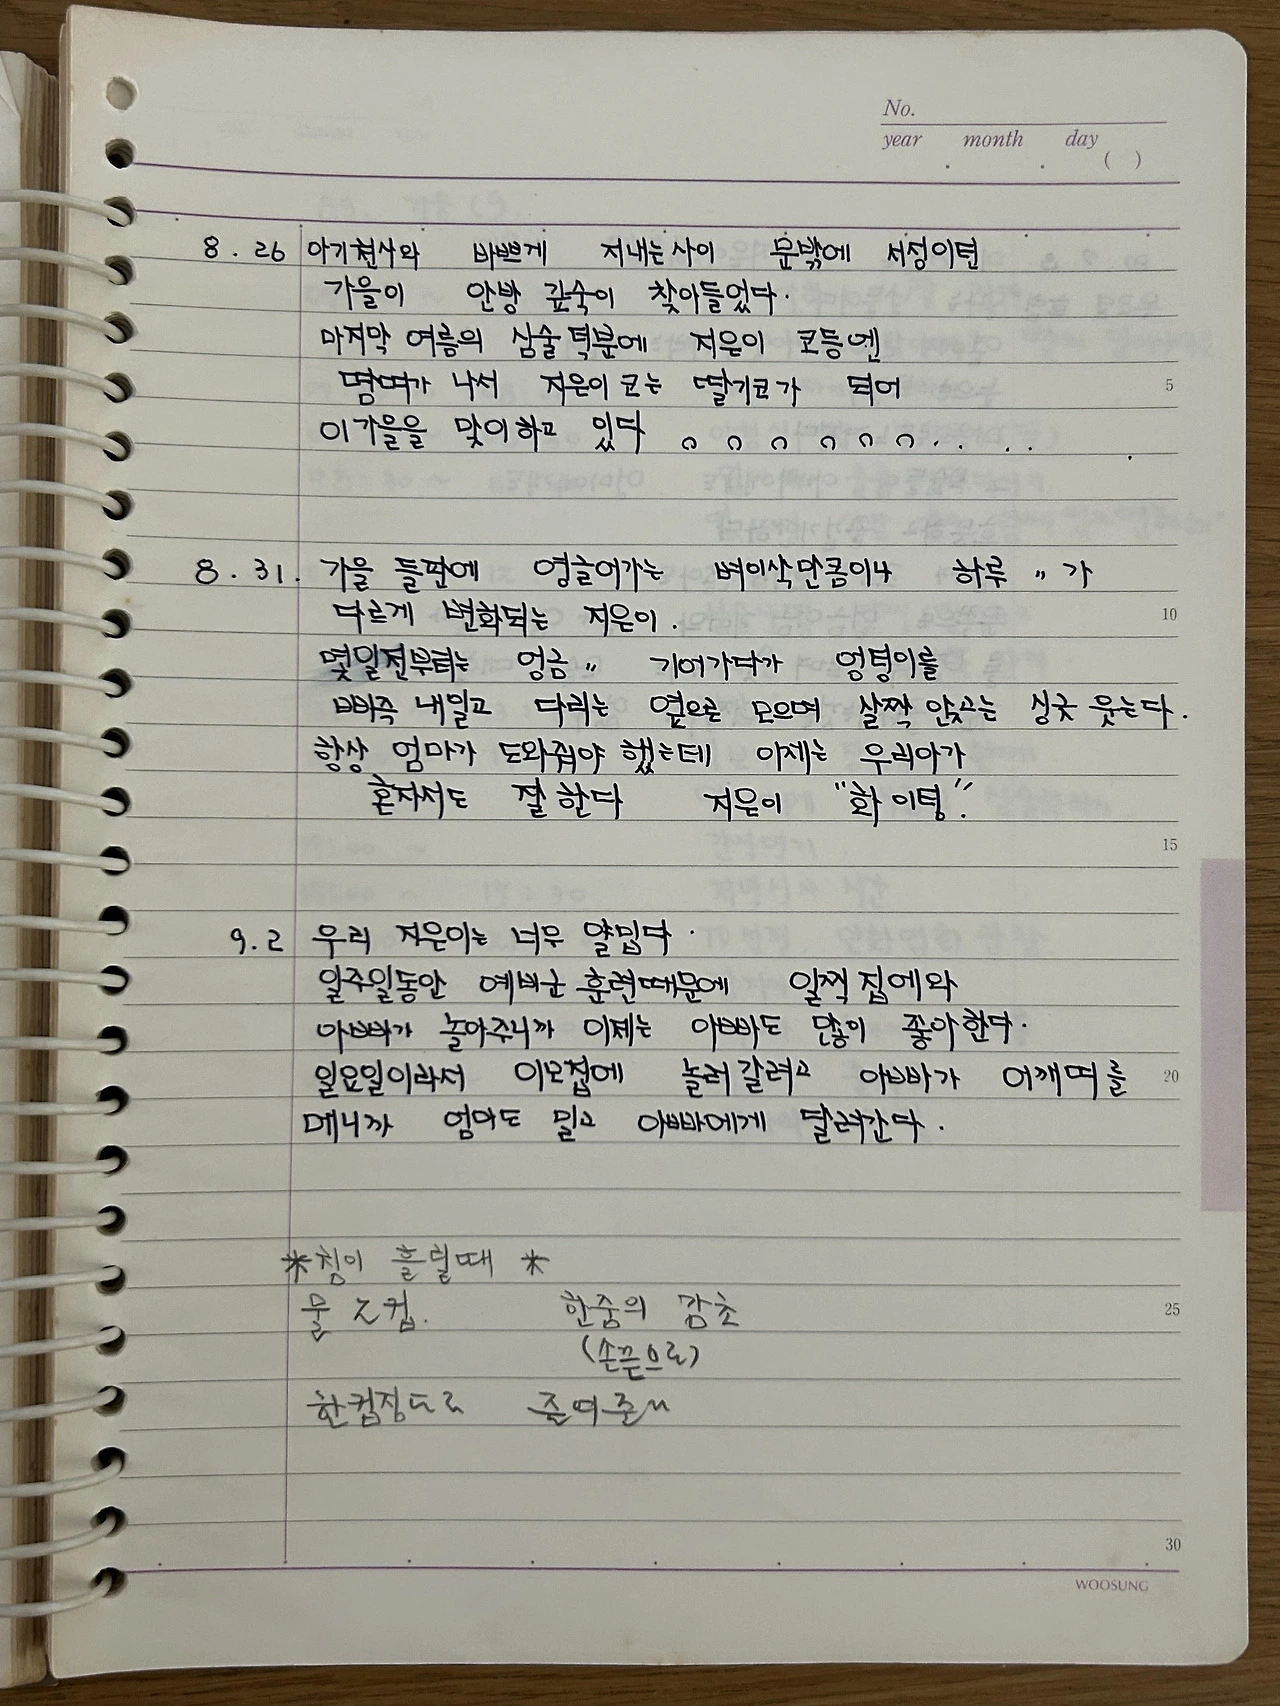 No.
year month day
( )
8.26 아기천사와 바쁘게 지내는사이 문밖에 서성이던
가을이 안방 깊숙이 찾아들었다.
마지막 여름의 심술덕분에 지은이 코등엔
땀띠가 나서 지은이코는 딸기코가 되어
이가을을 맞이하고 있다
5
8.31. 가을 들판에 영글어가는 벼이삭만큼이나 하루〃가
다르게 변화되는 지은이.
10
몇일전부터는 엉금〃 기어가다가 엉덩이를
삐쭉 내밀고 다리는 옆으로 모으며 살짝 앉고는 싱긋 웃는다.
항상 엄마가 도와줘야 했는데 이제는 우리아가
혼자서도 잘한다 지은이 "화이팅".
15
9.2 우리 지은이는 너무 얄밉다.
일주일동안 예비군 훈련때문에 일찍 집에와
아빠가 놀아주니까 이제는 아빠도 많이 좋아한다.
일요일이라서 이모집에 놀러갈려고 아빠가 어깨띠를
20
메니까 엄마도 밀고 아빠에게 달려간다.
*침이 흘릴때 *
물 2컵. 한줌의 감초
25
(손끝으로)
한컵정도로
30
WOOSUNG